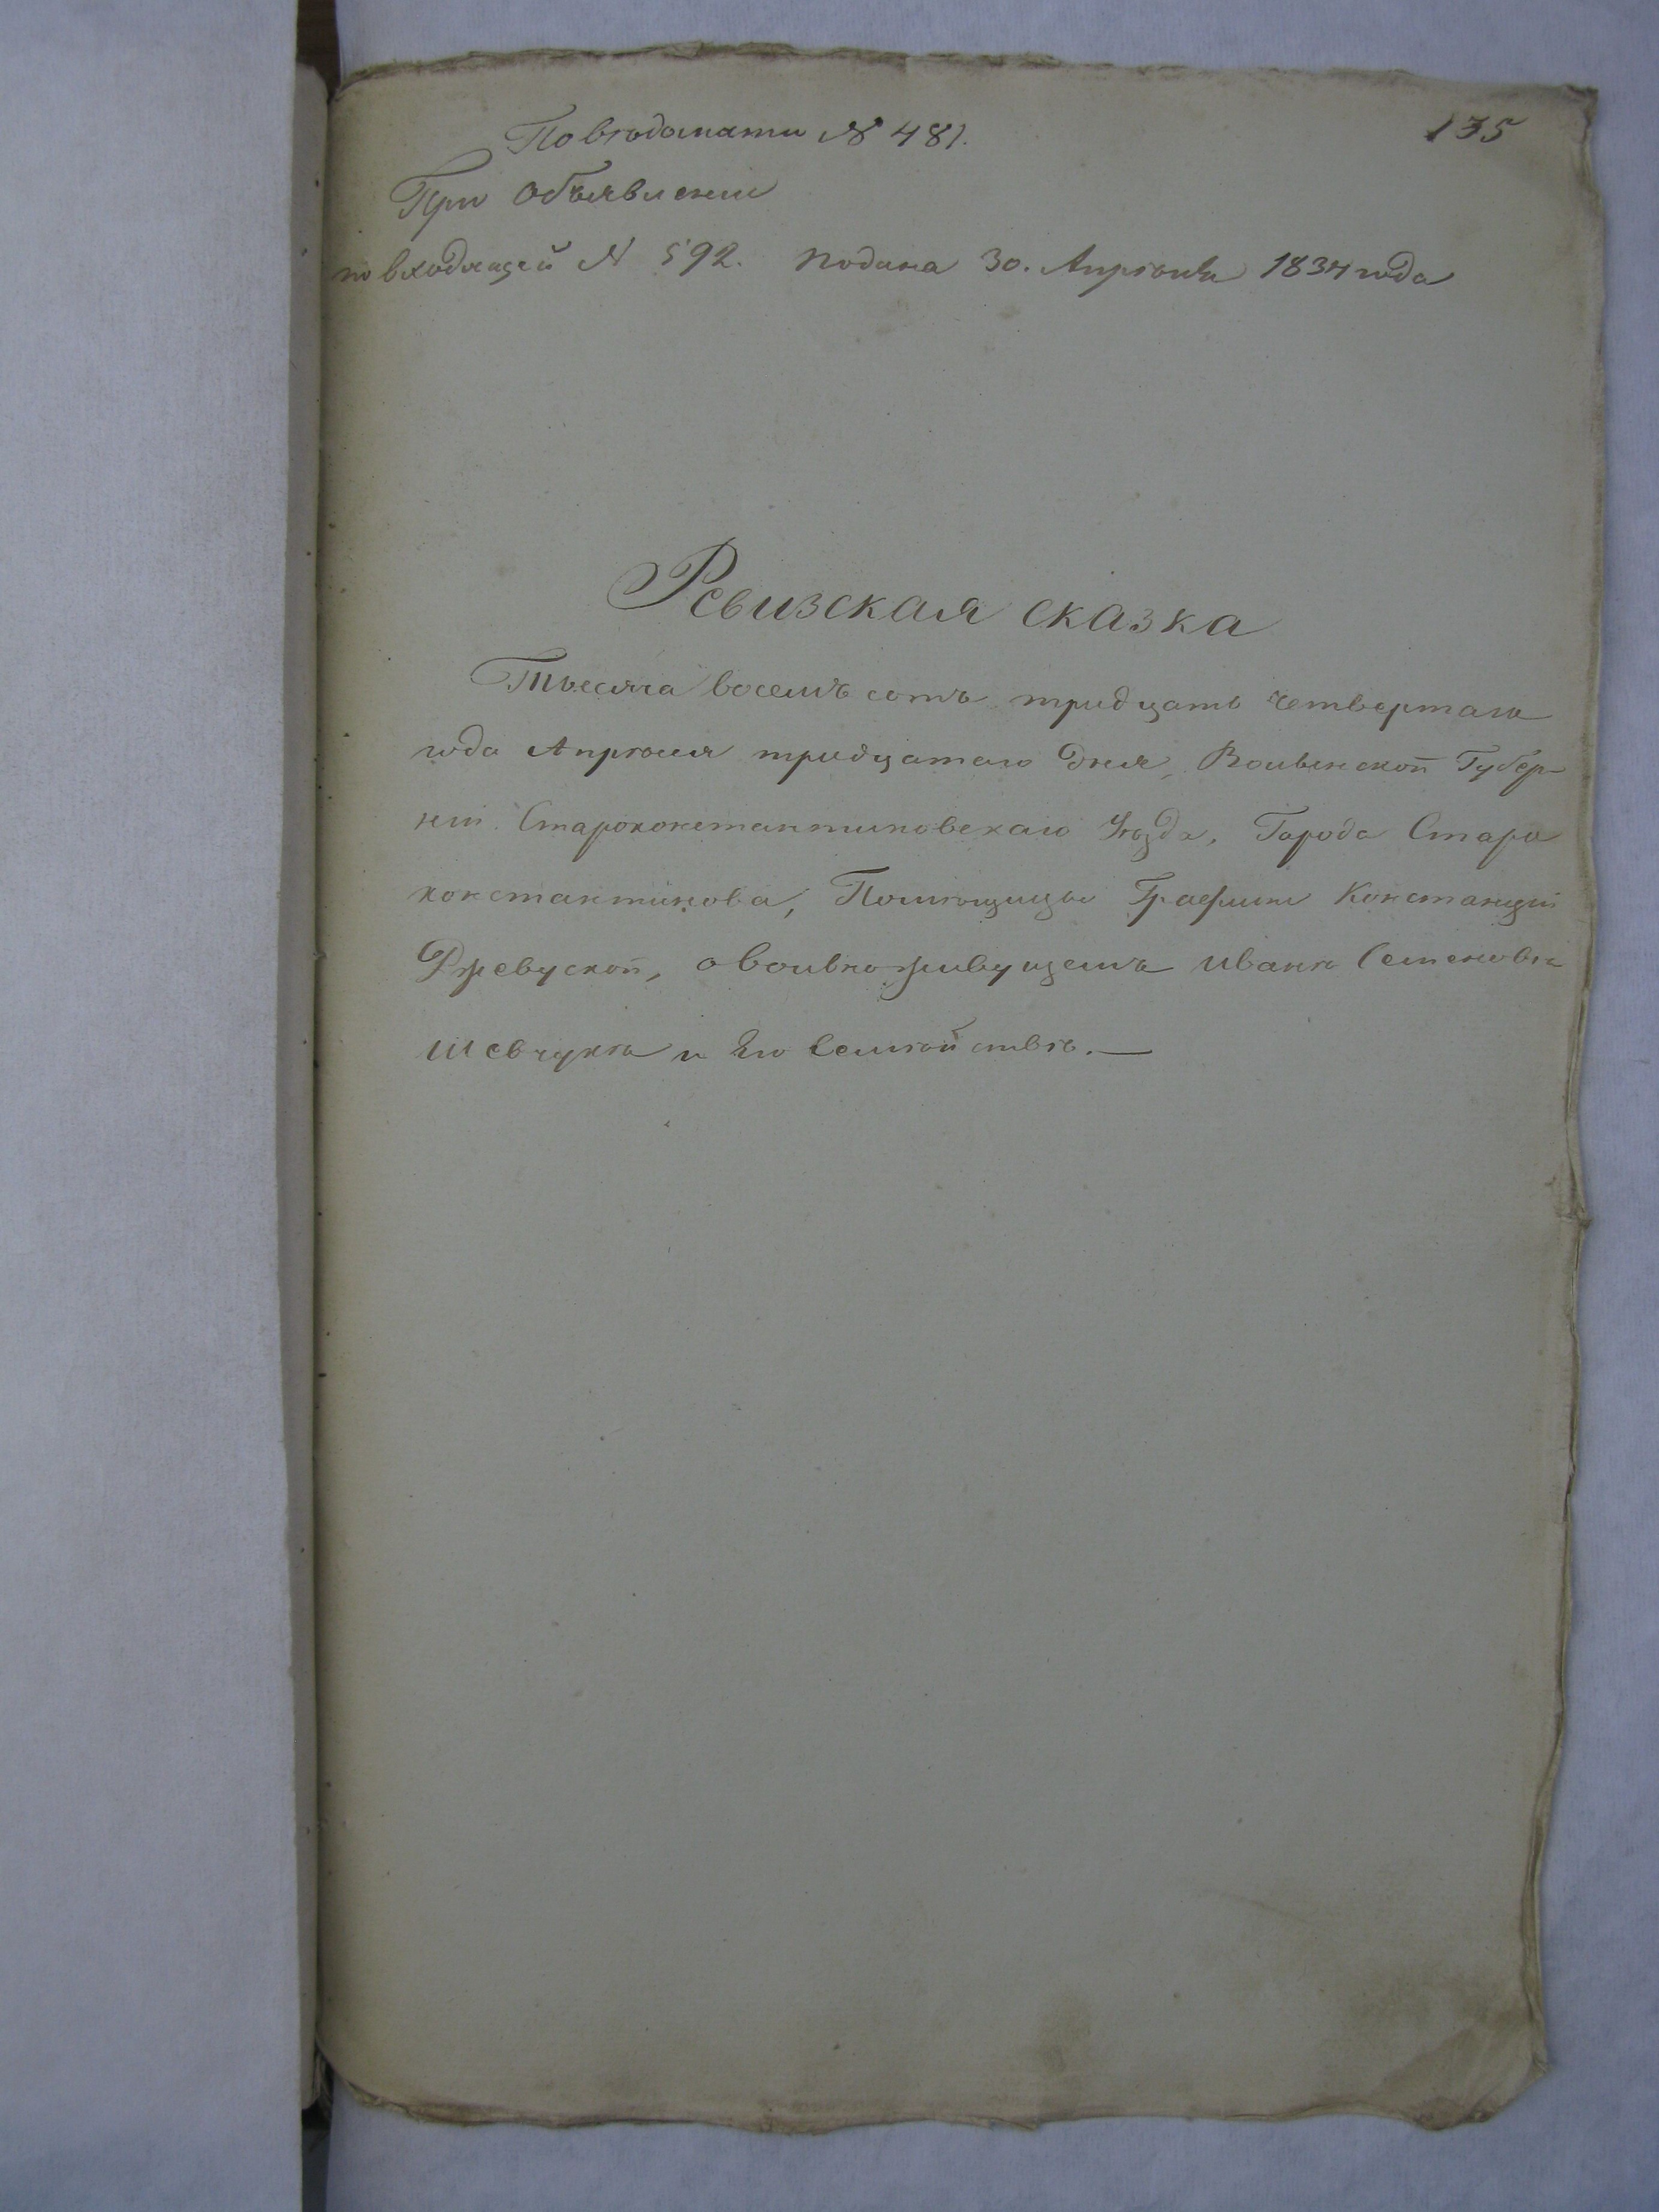 По вѣдомати № 481.
135
При объявлении
по входящей № 592. подана 30. Апрѣля 1834 года
Ревизская сказка
Тысяча восемъ сотъ тридцать четвертаго
года Апрѣля тридцатаго дня, Волынской Губер-
нии. Староконстантиновскаго Уѣзда, Города Старо
константинова, Помѣщицы Графини Констанции
Ржевуской, о вольно живущемъ Иванѣ Семеновѣ
Шевчукѣ и Его Семѣйствѣ.—